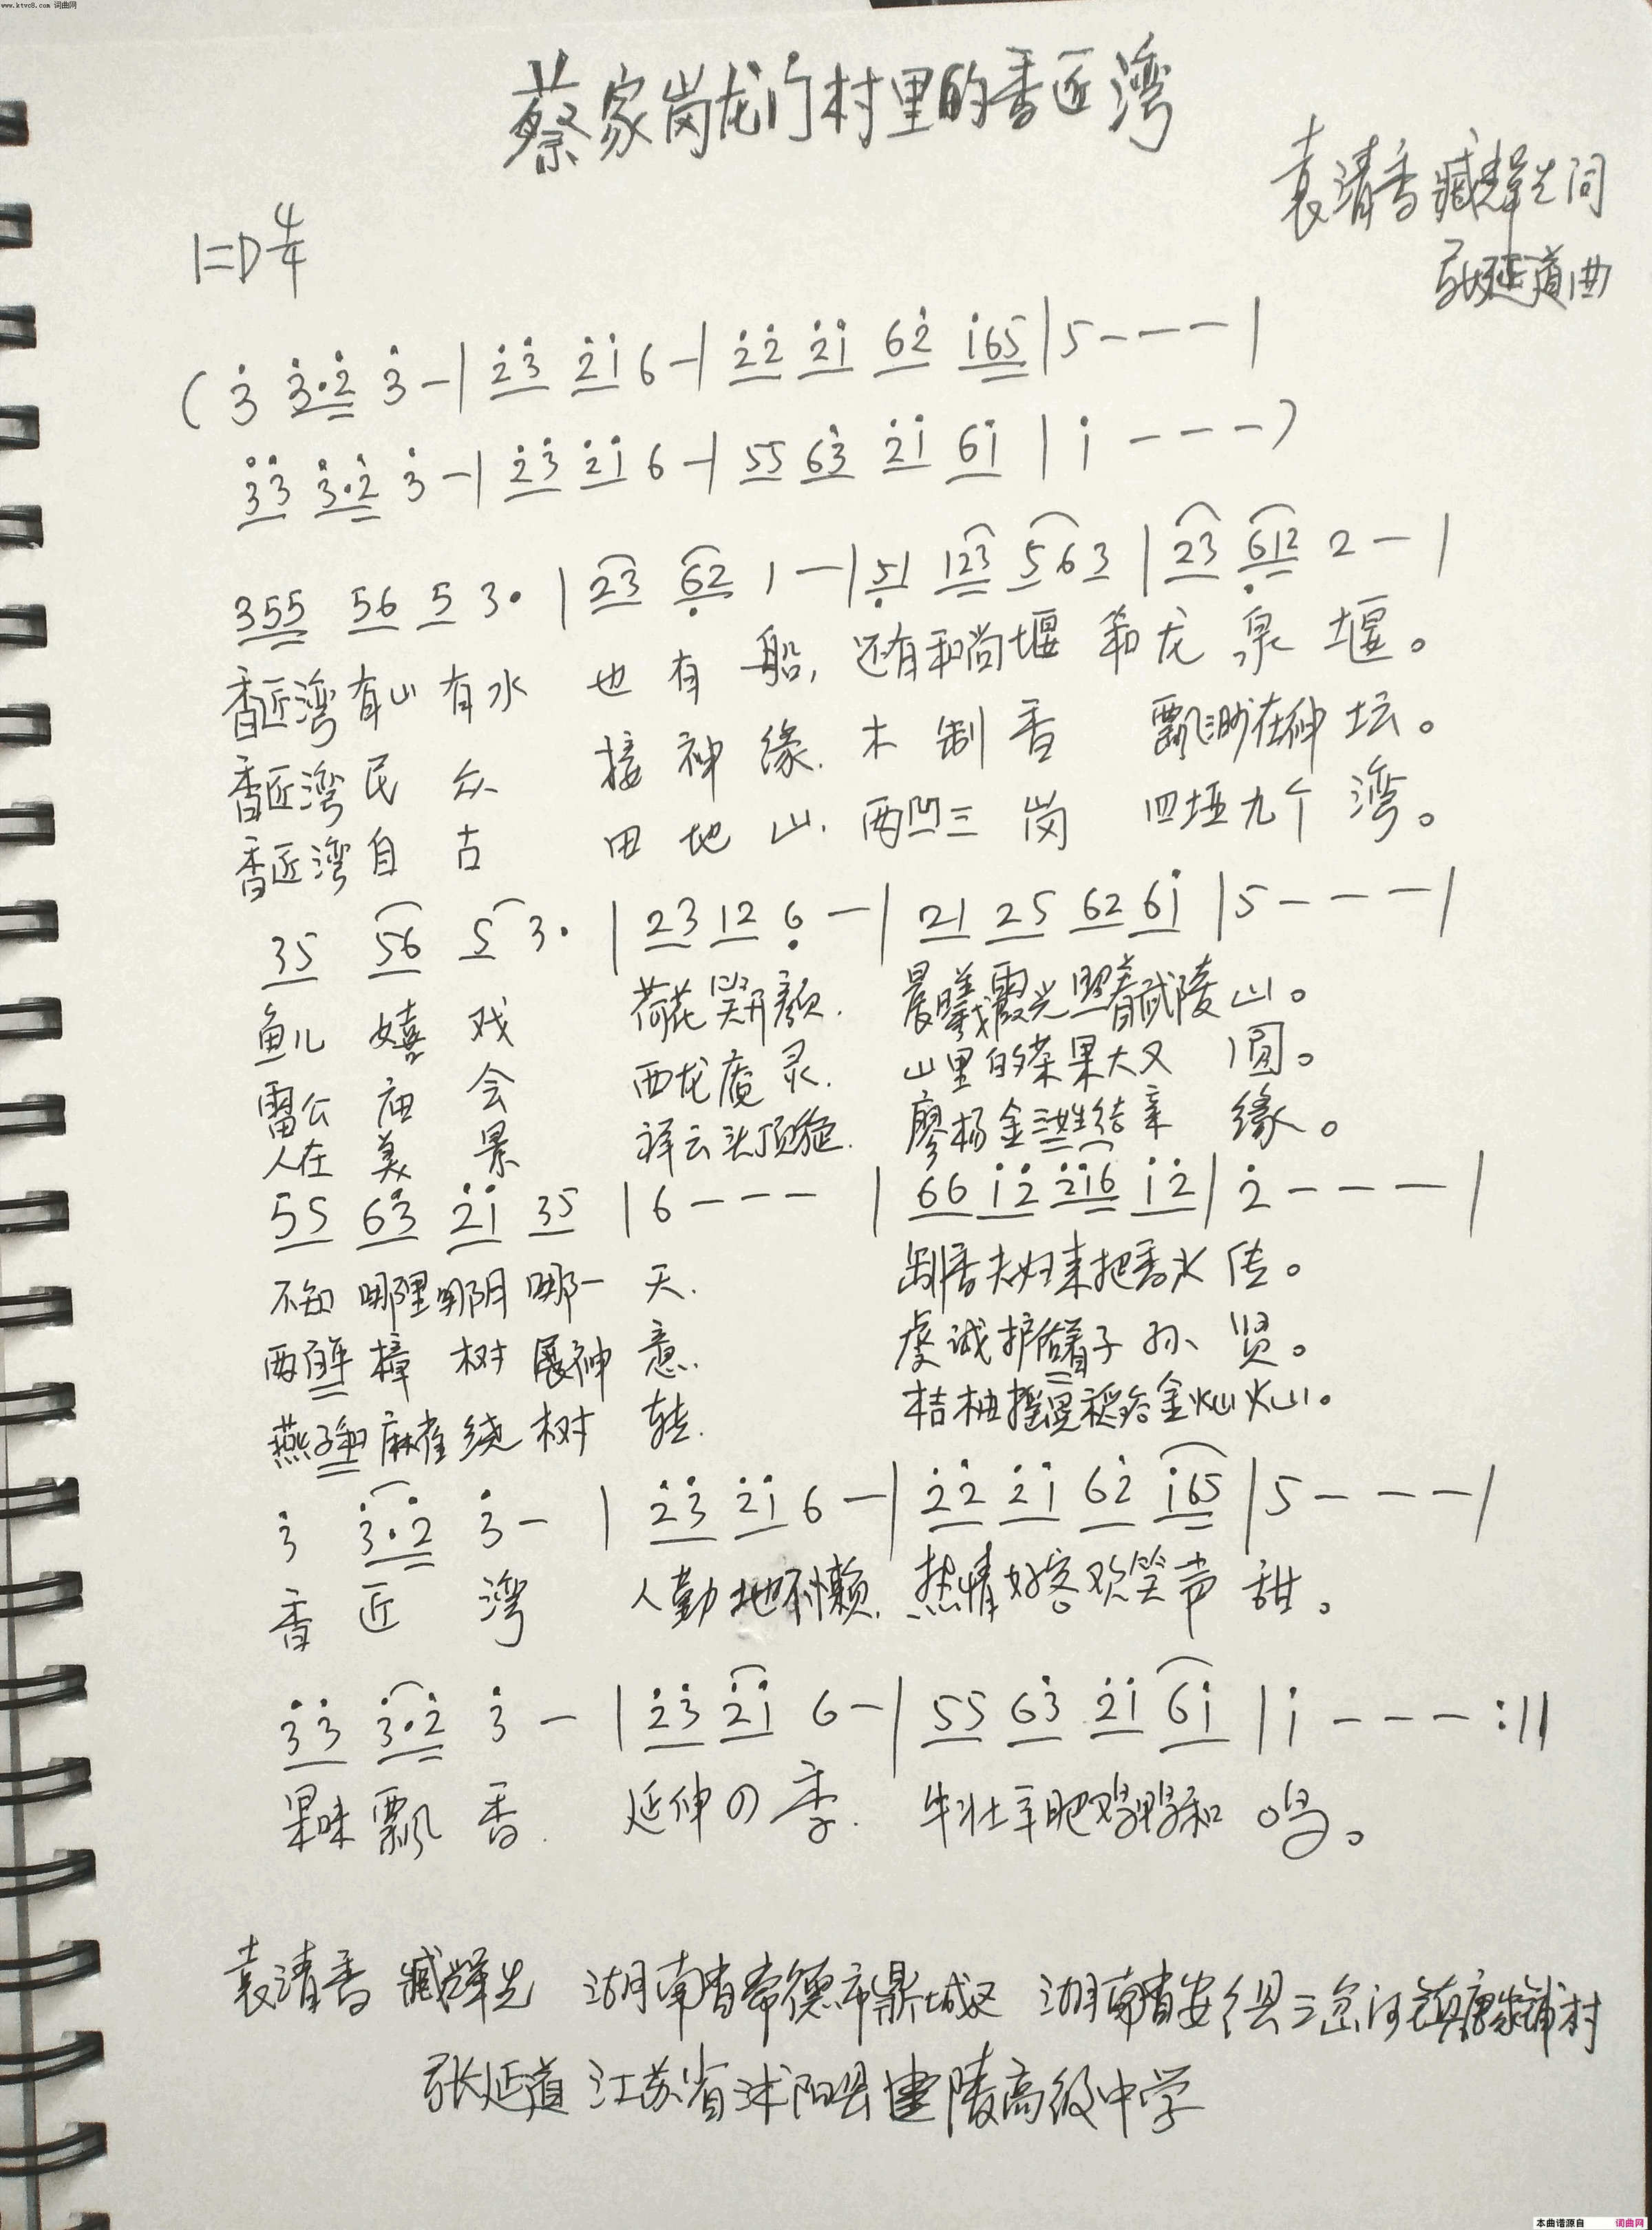 www.ktvc8.com 词曲网
蔡家岗龙门村里的香匠湾
袁清香 臧辉先词
1=D 4/4
张延道曲
(3̇ 3̇·2̇ 3̇ - | 2̇3̇ 2̇1̇ 6 - | 2̇2̇ 2̇1̇ 62̇ 1̇65 | 5 - - - |
3̇3̇ 3̇·2̇ 3̇ - | 2̇3̇ 2̇1̇ 6 - | 55 63̇ 2̇1̇ 61̇ | 1̇ - - - )
355 56 5 3· | 23 6̣2 1 - | 5̣1 123 5 6 3 | 23 6̣12 2 - |
香匠湾有山有水 也有船, 还有和尚堰 和龙泉堰。
香匠湾民众 接神缘. 木制香 飘渺在神坛。
香匠湾自古 田地山. 两凹三岗 四垭九个湾。
35 56 5 3· | 23 12 6̣ - | 21 25 62 61̇ | 5 - - - |
鱼儿嬉戏 荷花笑开颜. 晨曦霞光照着武陵山。
雷公庙会 西龙庵灵. 山里的茶果大又圆。
人在美景 祥云头顶旋. 廖杨金三姓结亲缘。
55 63̇ 2̇1̇ 35 | 6 - - - | 66 1̇2̇ 2̇1̇6 1̇2̇ | 2̇ - - - |
不知哪里哪阴哪一天. 制香夫妇来把香火传。
两颗樟树展神意. 虔诚护佑着子孙贤。
燕子和麻雀绕树转. 桔柚摇晃稻谷金灿灿。
3̇ 3̇·2̇ 3̇ - | 2̇3̇ 2̇1̇ 6 - | 2̇2̇ 2̇1̇ 62̇ 1̇65 | 5 - - - |
香匠湾 人勤地不懒. 热情好客欢笑声甜。
3̇3̇ 3̇·2̇ 3̇ - | 2̇3̇ 2̇1̇ 6 - | 55 63̇ 2̇1̇ 61̇ | 1̇ - - - :||
果味飘香. 延伸四季. 牛壮羊肥鸡鸭和鸣。
袁清香 臧辉先 湖南省常德市鼎城区 湖南省安乡县三岔河镇唐家铺村
张延道 江苏省沭阳县建陵高级中学
本曲谱源自 词曲网